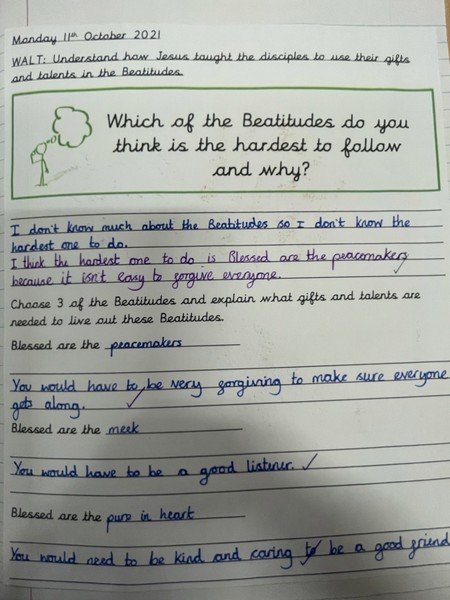 Monday 11th October 2021
WALT: Understand how Jesus taught the disciples to use their gifts
and talents in the Beatitudes.
Which of the Beatitudes do you
think is the hardest to follow
and why?
I don't know much about the Beatitudes so I don't know the
hardest one to do.
I think the hardest one to do is Blessed are the peacemakers
because it isn't easy to forgive everyone.
Choose 3 of the Beatitudes and explain what gifts and talents are
needed to live out these Beatitudes.
Blessed are the peacemakers
You would have to be very forgiving to make sure everyone
gets along.
Blessed are the meek
You would have to be a good listener.
Blessed are the pure in heart
You would need to be kind and caring to be a good friend